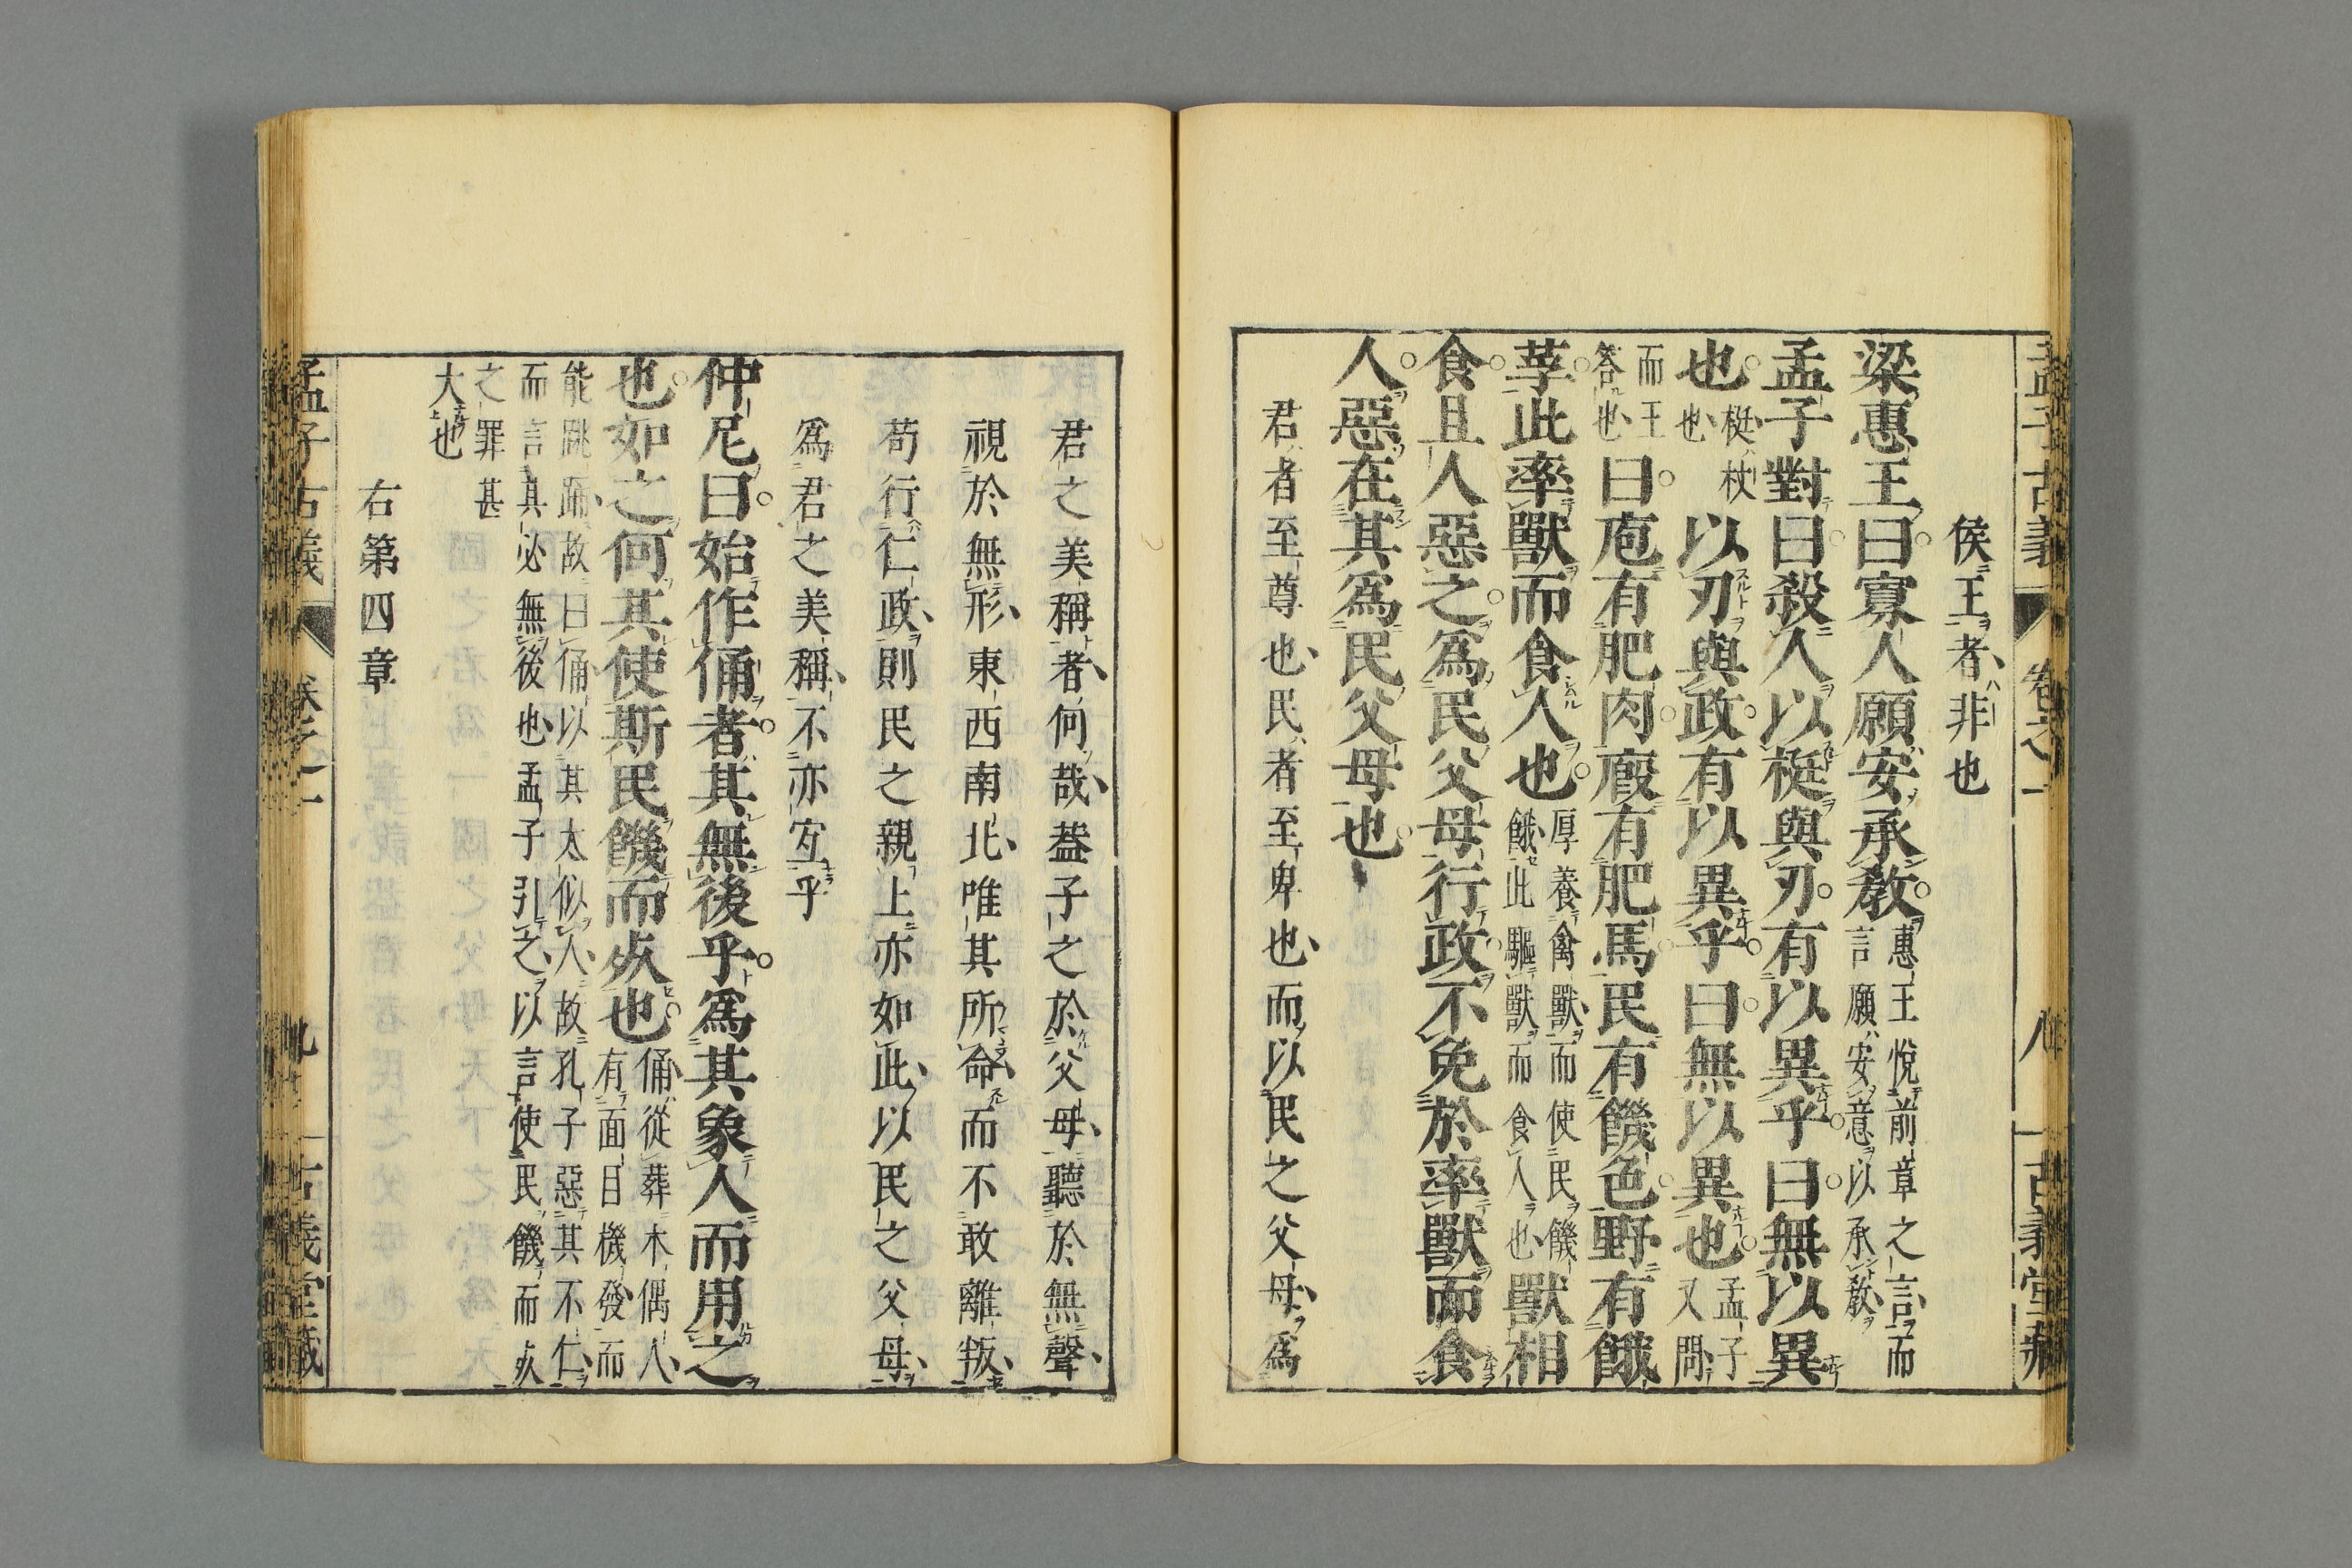 孟子古義 卷之一 八 古義堂藏
侯王者非也
梁惠王曰寡人願安承教
惠王悅前章之言而
言願安意以承教
孟子對曰殺人以梃與刃有以異乎曰無以異
也
梃杖
也
以刃與政有以異乎曰無以異也
孟子
又問
而王
答也
曰庖有肥肉廄有肥馬民有饑色野有餓
莩此率獸而食人也
厚養禽獸而使民饑
餓此驅獸而食人也
獸相
食且人惡之爲民父母行政不免於率獸而食
人惡在其爲民父母也
君者至尊也民者至卑也而以民之父母爲
君之美稱者何哉蓋子之於父母聽於無聲
視於無形東西南北唯其所命而不敢離叛
苟行仁政則民之親上亦如此以民之父母
爲君之美稱不亦宜乎
仲尼曰始作俑者其無後乎爲其象人而用之
也如之何其使斯民饑而死也
俑從葬木偶人
有面目機發而
能跳踊故曰俑以其太似人故孔子惡其不仁
而言其必無後也孟子引之以言使民饑而死
之罪甚
大也
右第四章
孟子古義 卷之一 九 古義堂藏